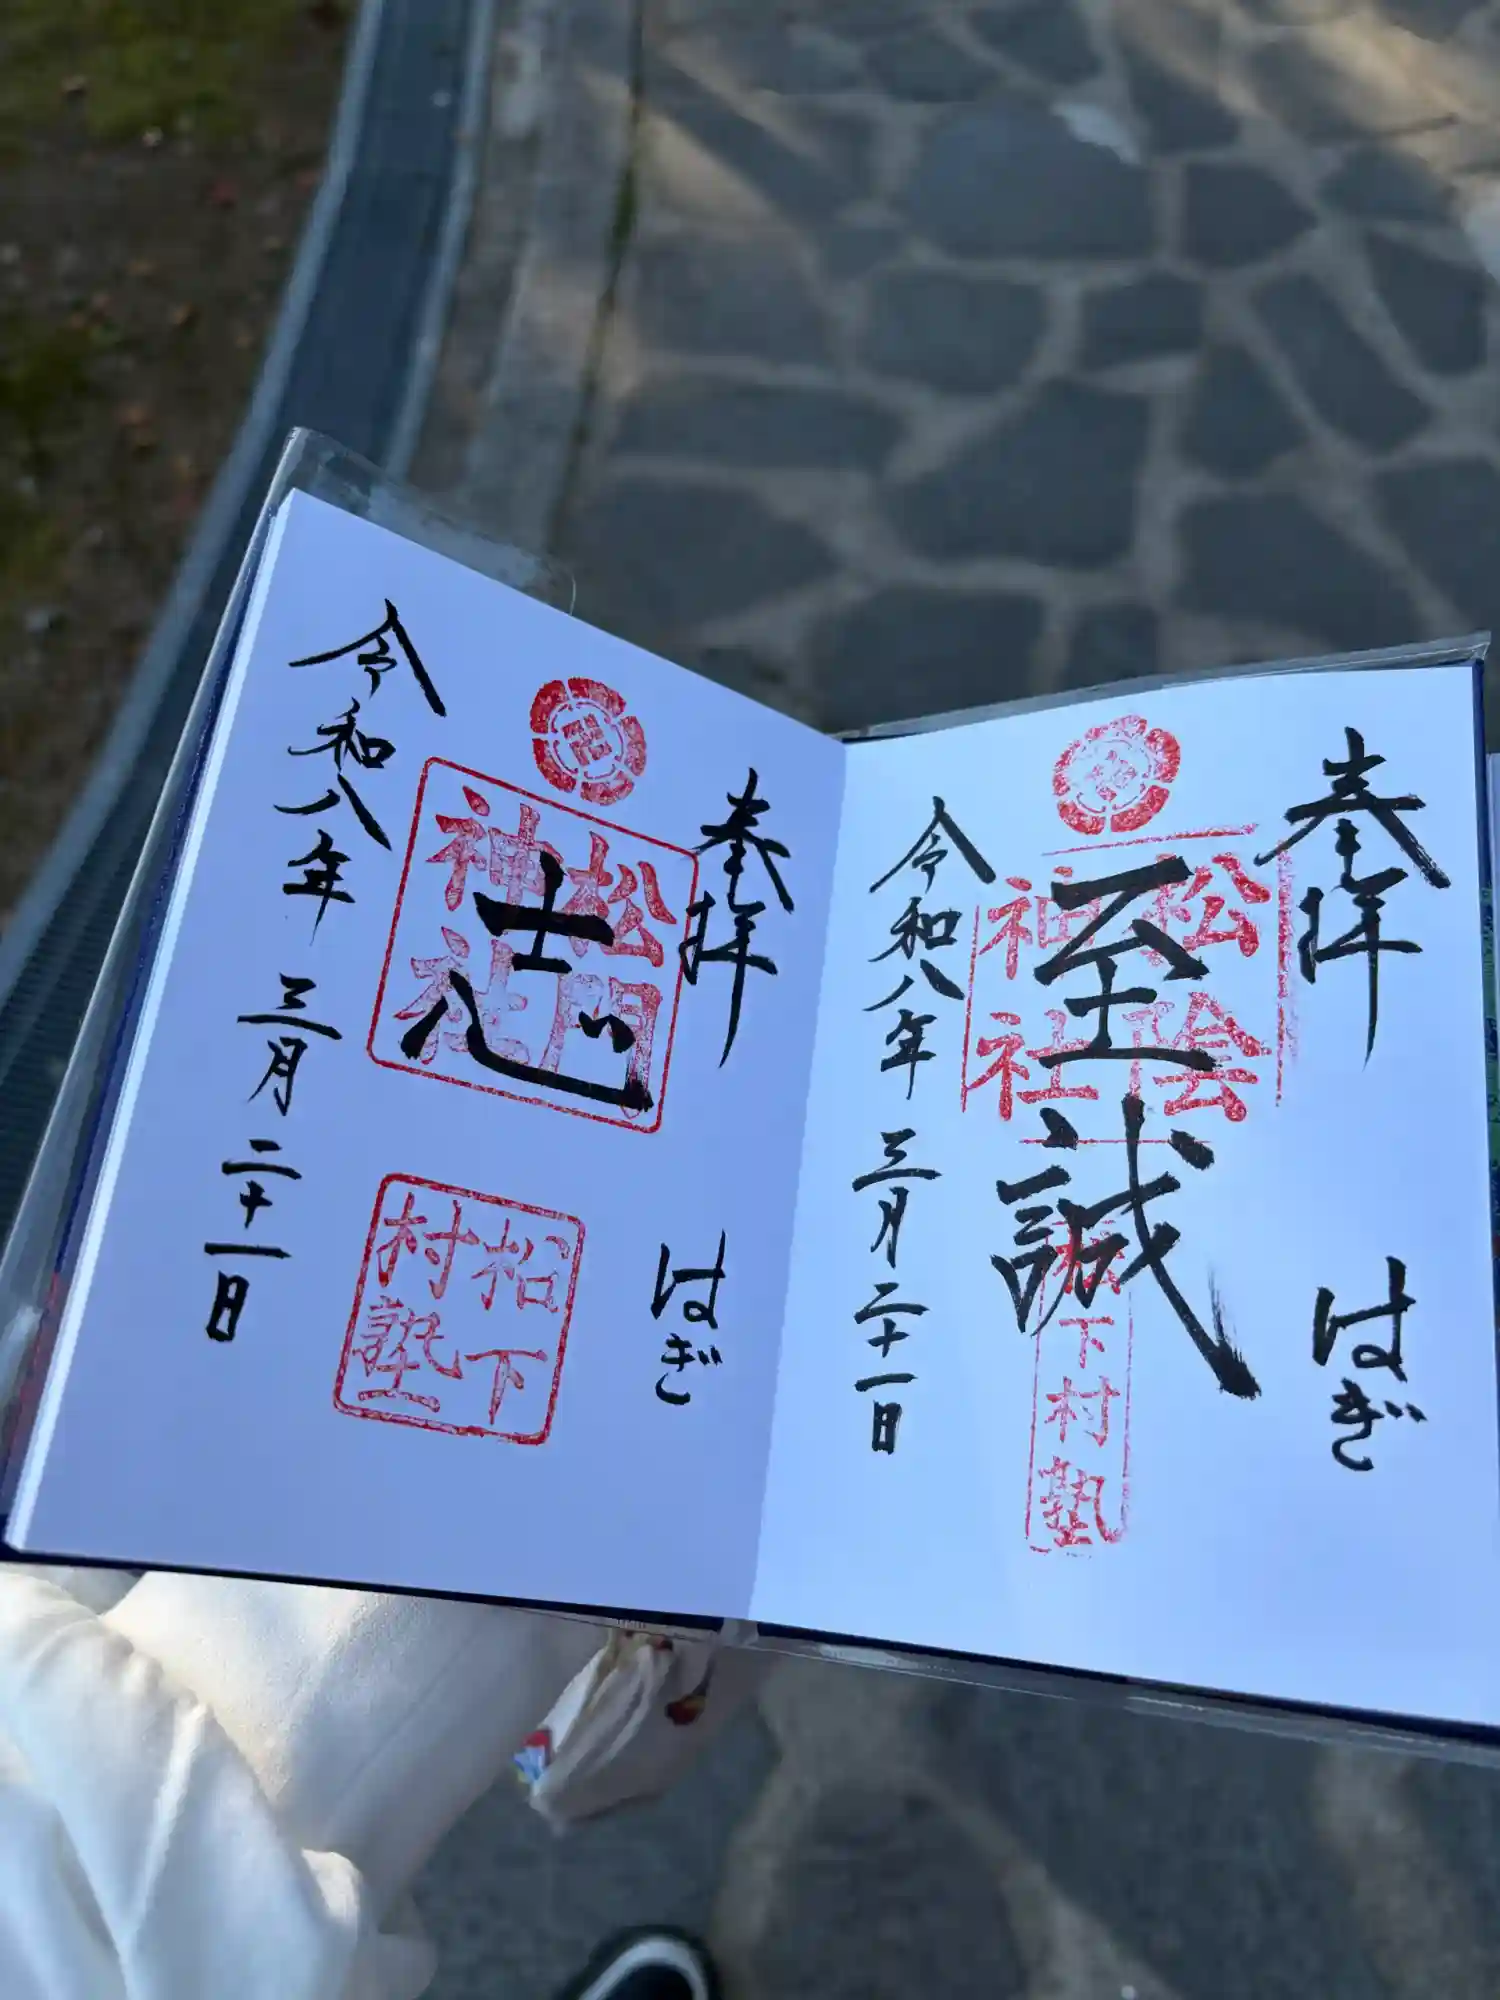 奉拝
はぎ
松陰神社
至誠
松下村塾
令和八年 三月 二十一日
奉拝
はぎ
松門神社
志
松下村塾
令和八年 三月 二十一日